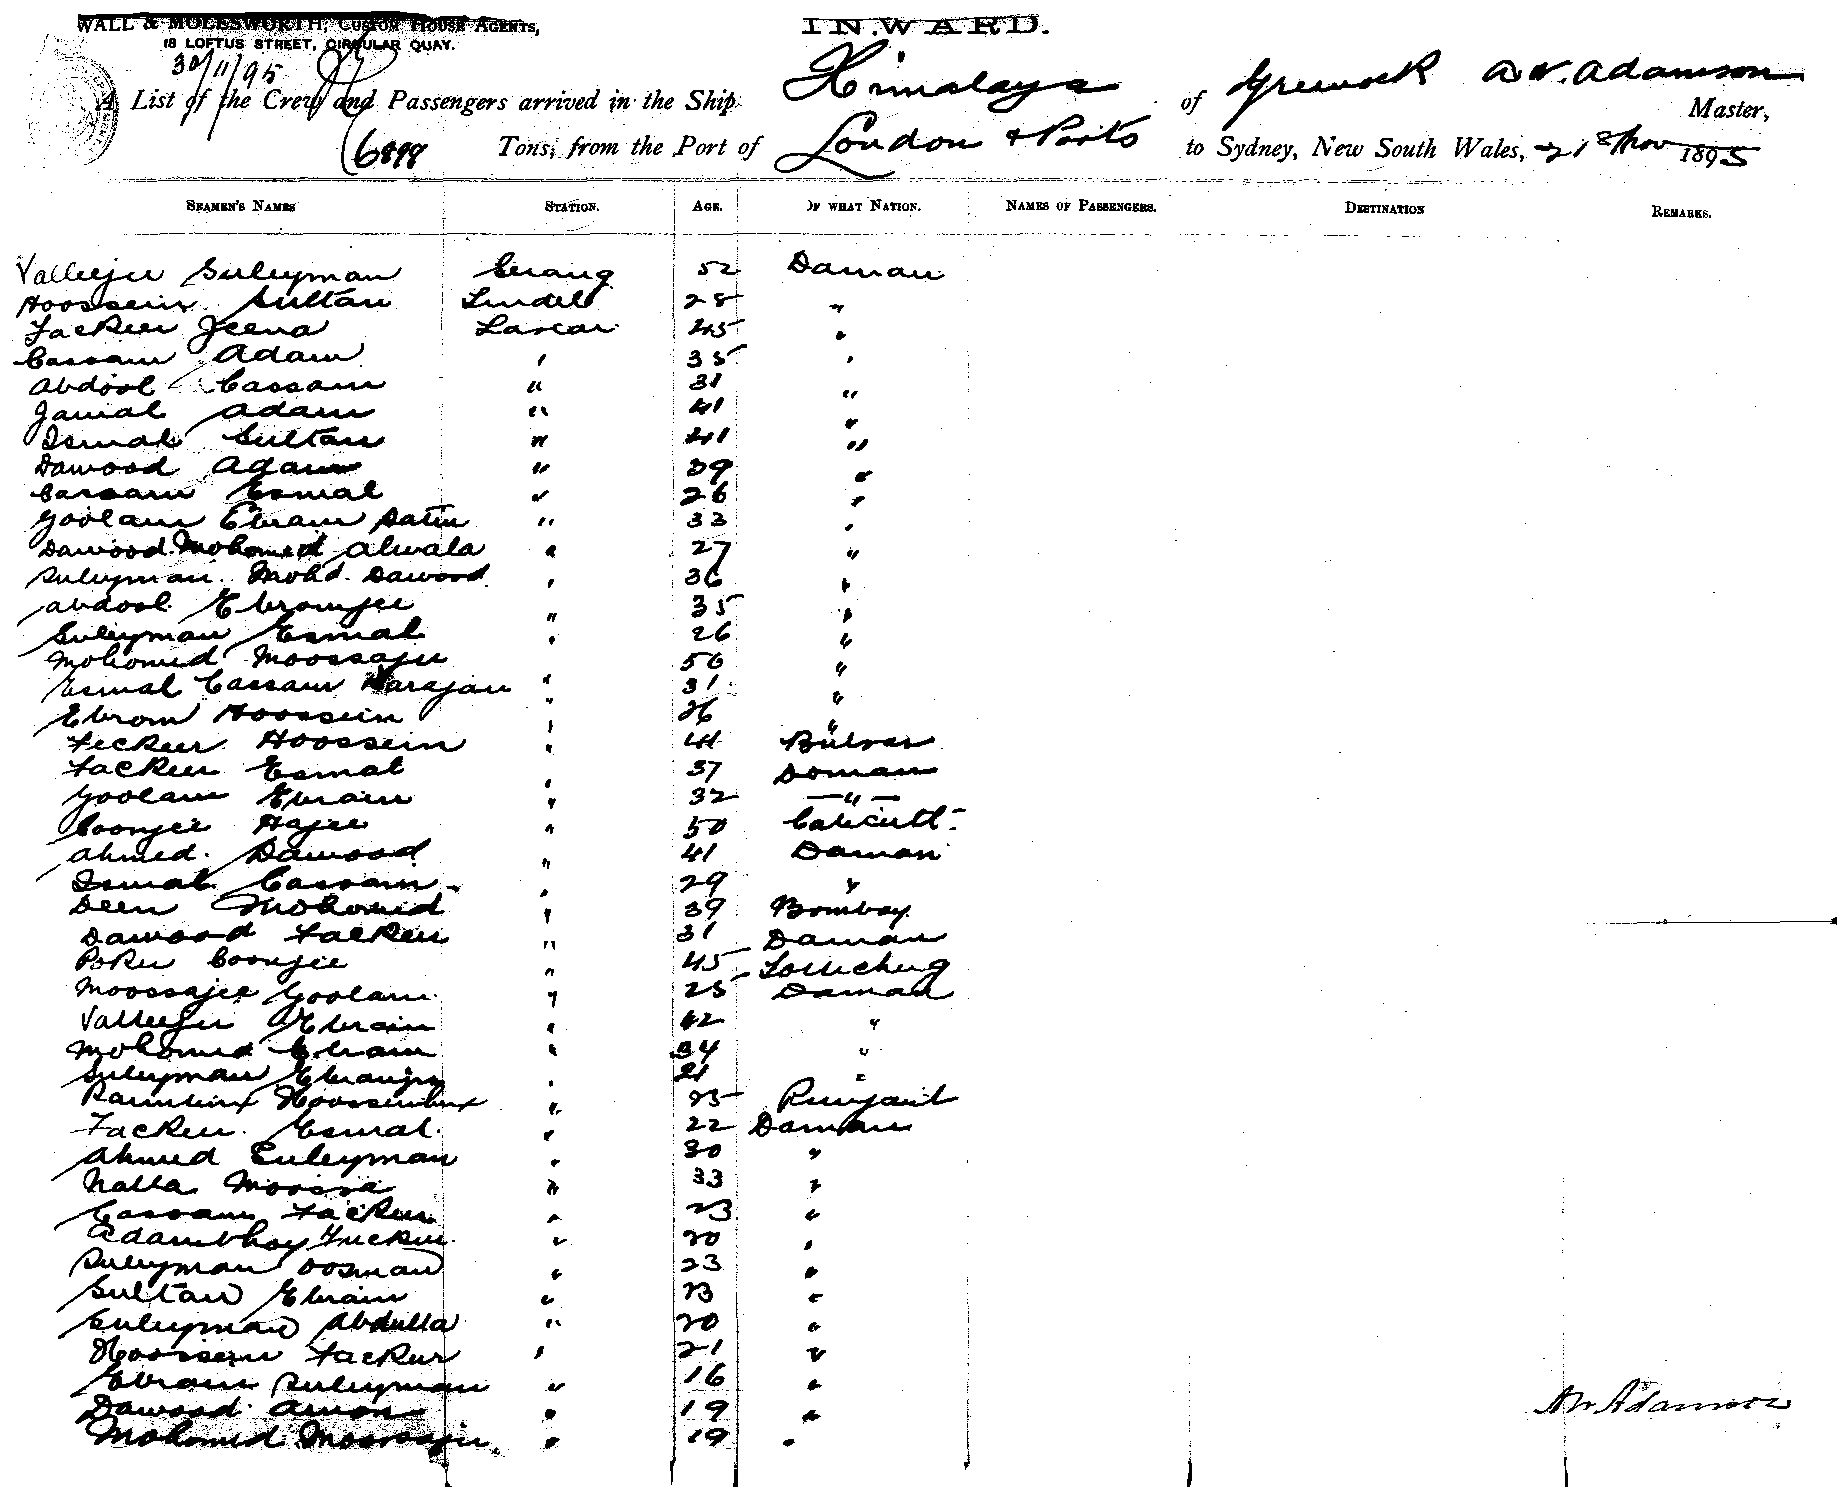 WALL & MOLESWORTH, CUSTOM HOUSE AGENTS,
18 LOFTUS STREET, CIRCULAR QUAY.
INWARD.
30/11/95
A List of the Crew and Passengers arrived in the Ship Himalaya of Greenock A. W. Adamson Master,
6898 Tons, from the Port of London & Ports to Sydney, New South Wales, 21st Nov 1895
SEAMEN'S NAMES STATION. AGE. OF WHAT NATION. NAMES OF PASSENGERS. DESTINATION REMARKS.
Valleejee Suleyman Serang 52 Daman
Hoossein Sultan 28 "
Fackeer Jeena Lascar 45 "
Cassam Adam " 35 "
Abdool Cassam " 31 "
Jamal Adam " 41 "
Ismal Sultan " 41 "
Dawood Adam " 39 "
Cassam Esmal " 26 "
Goolam Ebram " 33 "
Dawood Mohomed Alwala " 27 "
Suleyman Mohd. Dawood " 36 "
Abdool Ebramjee " 35 "
Suleyman Esmal " 26 "
Mohomed Moossajee 56 "
Esmal Cassam " 31 "
Ebrom Hoossein " 26 "
Feckeer Hoossein " 41
Fackeer Esmal " 37 Doman
Goolam Ebram " 32 — " —
Coonjee Hajee " 50 Calicutt
Ahmed Dawood " 41 Daman
Ismal Cassam " 29 "
Deen Mohomed " 39 Bombay
Dawood Fackeer " 31 Daman
Coonjee " 45
Moossajee Goolam " 25 Daman
Valleejee Ebraim " 42 "
Mohomed Ebram " 34 "
Suleyman Ebramjee " 21 "
" 25 Punjaub
Fackeer Esmal " 22 Daman
Ahmed Suleyman " 30 "
Nalla Moossa " 33 "
Cassam Fackeer " 23 "
Adambhoy Fuckeer " 20 "
Suleyman Oosman " 23 "
Sultan Ebram " 23 "
Suleyman Abdulla " 20 "
Hoossein Fackeer " 21 "
Ebram Suleyman " 16 "
Dawood Amon " 19 "
Mohomed Moossajee " 19 "
AW Adamson